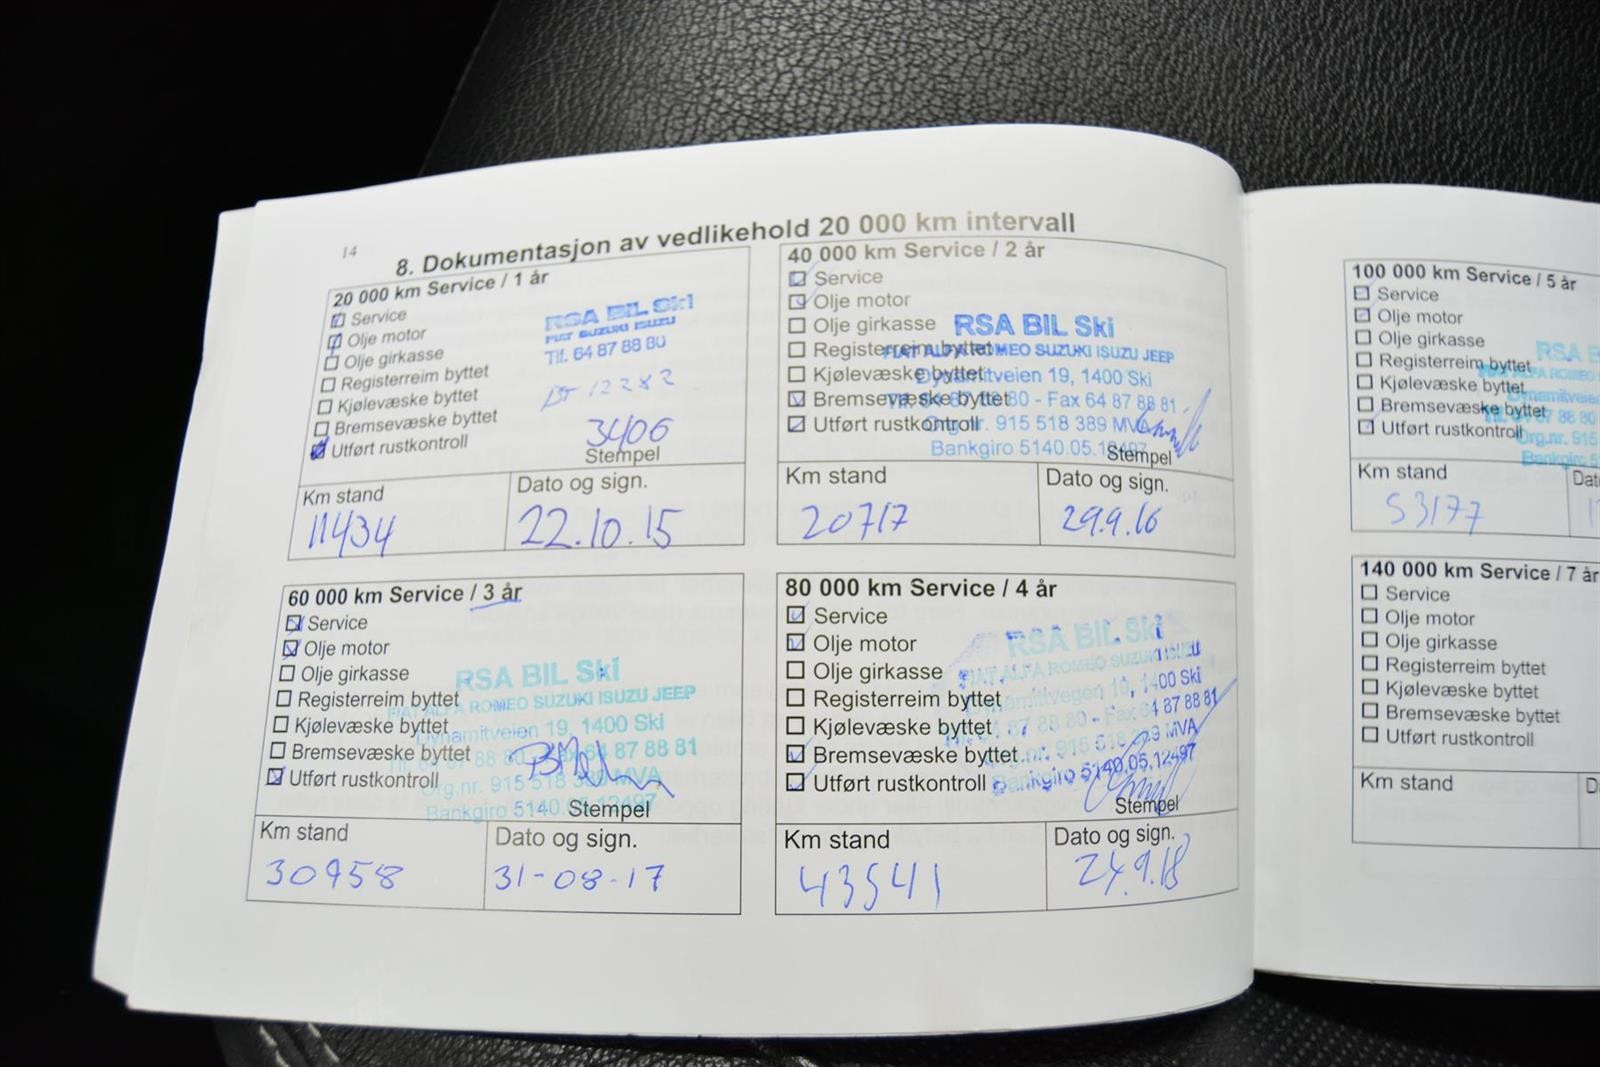 14
8. Dokumentasjon av vedlikehold 20 000 km intervall
20 000 km Service / 1 år
Service
Olje motor
Olje girkasse
Registerreim byttet
Kjølevæske byttet
Bremsevæske byttet
Utført rustkontroll
RSA BIL Ski
FIAT SUZUKI ISUZU
Tlf. 64 87 88 80
3406
Stempel
Km stand
11434
Dato og sign.
22.10.15
40 000 km Service / 2 år
Service
Olje motor
Olje girkasse
Registerreim byttet
Kjølevæske byttet
Bremsevæske byttet
Utført rustkontroll
RSA BIL Ski
FIAT ALFA ROMEO SUZUKI ISUZU JEEP
Dynamitveien 19, 1400 Ski
Tlf. 64 87 88 80 - Fax 64 87 88 81
Org.nr. 915 518 389 MVA
Bankgiro 5140.05.12497
Stempel
Km stand
20717
Dato og sign.
29.9.16
60 000 km Service / 3 år
Service
Olje motor
Olje girkasse
Registerreim byttet
Kjølevæske byttet
Bremsevæske byttet
Utført rustkontroll
RSA BIL Ski
FIAT ALFA ROMEO SUZUKI ISUZU JEEP
Dynamitveien 19, 1400 Ski
Tlf. 64 87 88 80 - Fax 64 87 88 81
Org.nr. 915 518 389 MVA
Bankgiro 5140.05.12497
Stempel
Km stand
30958
Dato og sign.
31-08-17
80 000 km Service / 4 år
Service
Olje motor
Olje girkasse
Registerreim byttet
Kjølevæske byttet
Bremsevæske byttet
Utført rustkontroll
RSA BIL Ski
FIAT ALFA ROMEO SUZUKI ISUZU
Dynamittvegen 19, 1400 Ski
Tlf. 64 87 88 80 - Fax 64 87 88 81
Org.nr. 915 518 389 MVA
Bankgiro 5140.05.12497
Stempel
Km stand
43541
Dato og sign.
24.9.18
100 000 km Service / 5 år
Service
Olje motor
Olje girkasse
Registerreim byttet
Kjølevæske byttet
Bremsevæske byttet
Utført rustkontroll
RSA B
FIAT ALFA ROMEO
Dynamitveien
Tlf. 64 87 88 80
Org.nr. 915
Bankgiro 5
Km stand
53177
Dat
140 000 km Service / 7 år
Service
Olje motor
Olje girkasse
Registerreim byttet
Kjølevæske byttet
Bremsevæske byttet
Utført rustkontroll
Km stand
D